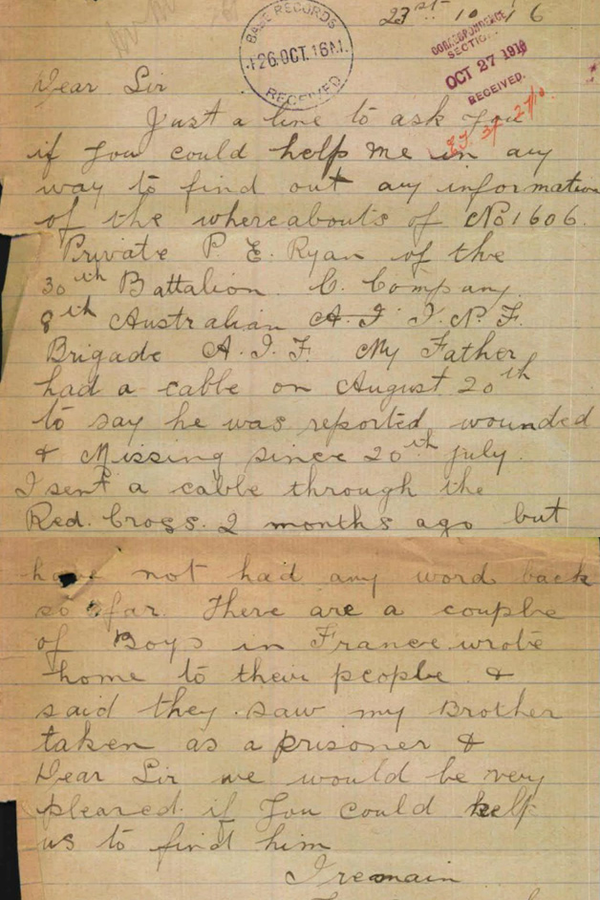 23st 10 16
BASE RECORDS
26.OCT.16
RECEIVED
CORRESPONDENCE
SECTION
OCT 27 1916
RECEIVED.
Dear Sir
Just a line to ask you
if you could help me in any
way to find out any information
of the whereabouts of No 1606.
Private P. E. Ryan of the
30th Battalion. C. Company.
8th Australian A.I I.N.F.
Brigade A.I.F. My Father
had a cable on August 20th
to say he was reported wounded
& Missing since 20th July.
I sent a cable through the
Red. Cross. 2 months ago but
have not had any word back
so far. There are a couple
of Boys in France wrote
home to their people &
said they saw my Brother
taken as a prisoner &
Dear Sir we would be very
pleased if you could help
us to find him
I remain